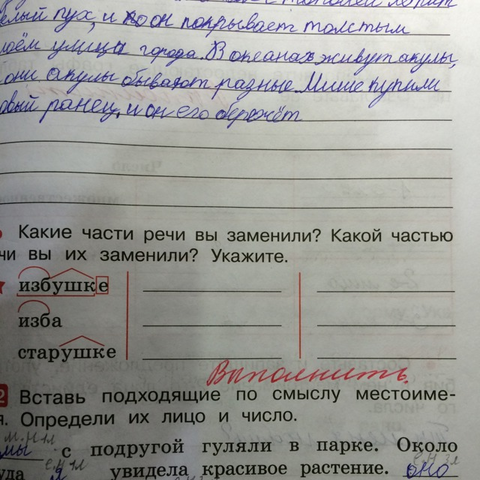 елый пух, и он покрывает толстым
оём улицы города. В океанах живут акулы,
они акулы бывают разные. Мише купили
овый ранец, и он его бережёт
Какие части речи вы заменили? Какой частью
чи вы их заменили? Укажите.
избушке
изба
старушке
Выполнить.
2 Вставь подходящие по смыслу местоиме-
я. Определи их лицо и число.
м.н 1л
мы с подругой гуляли в парке. Около
уда я увидела красивое растение. оно